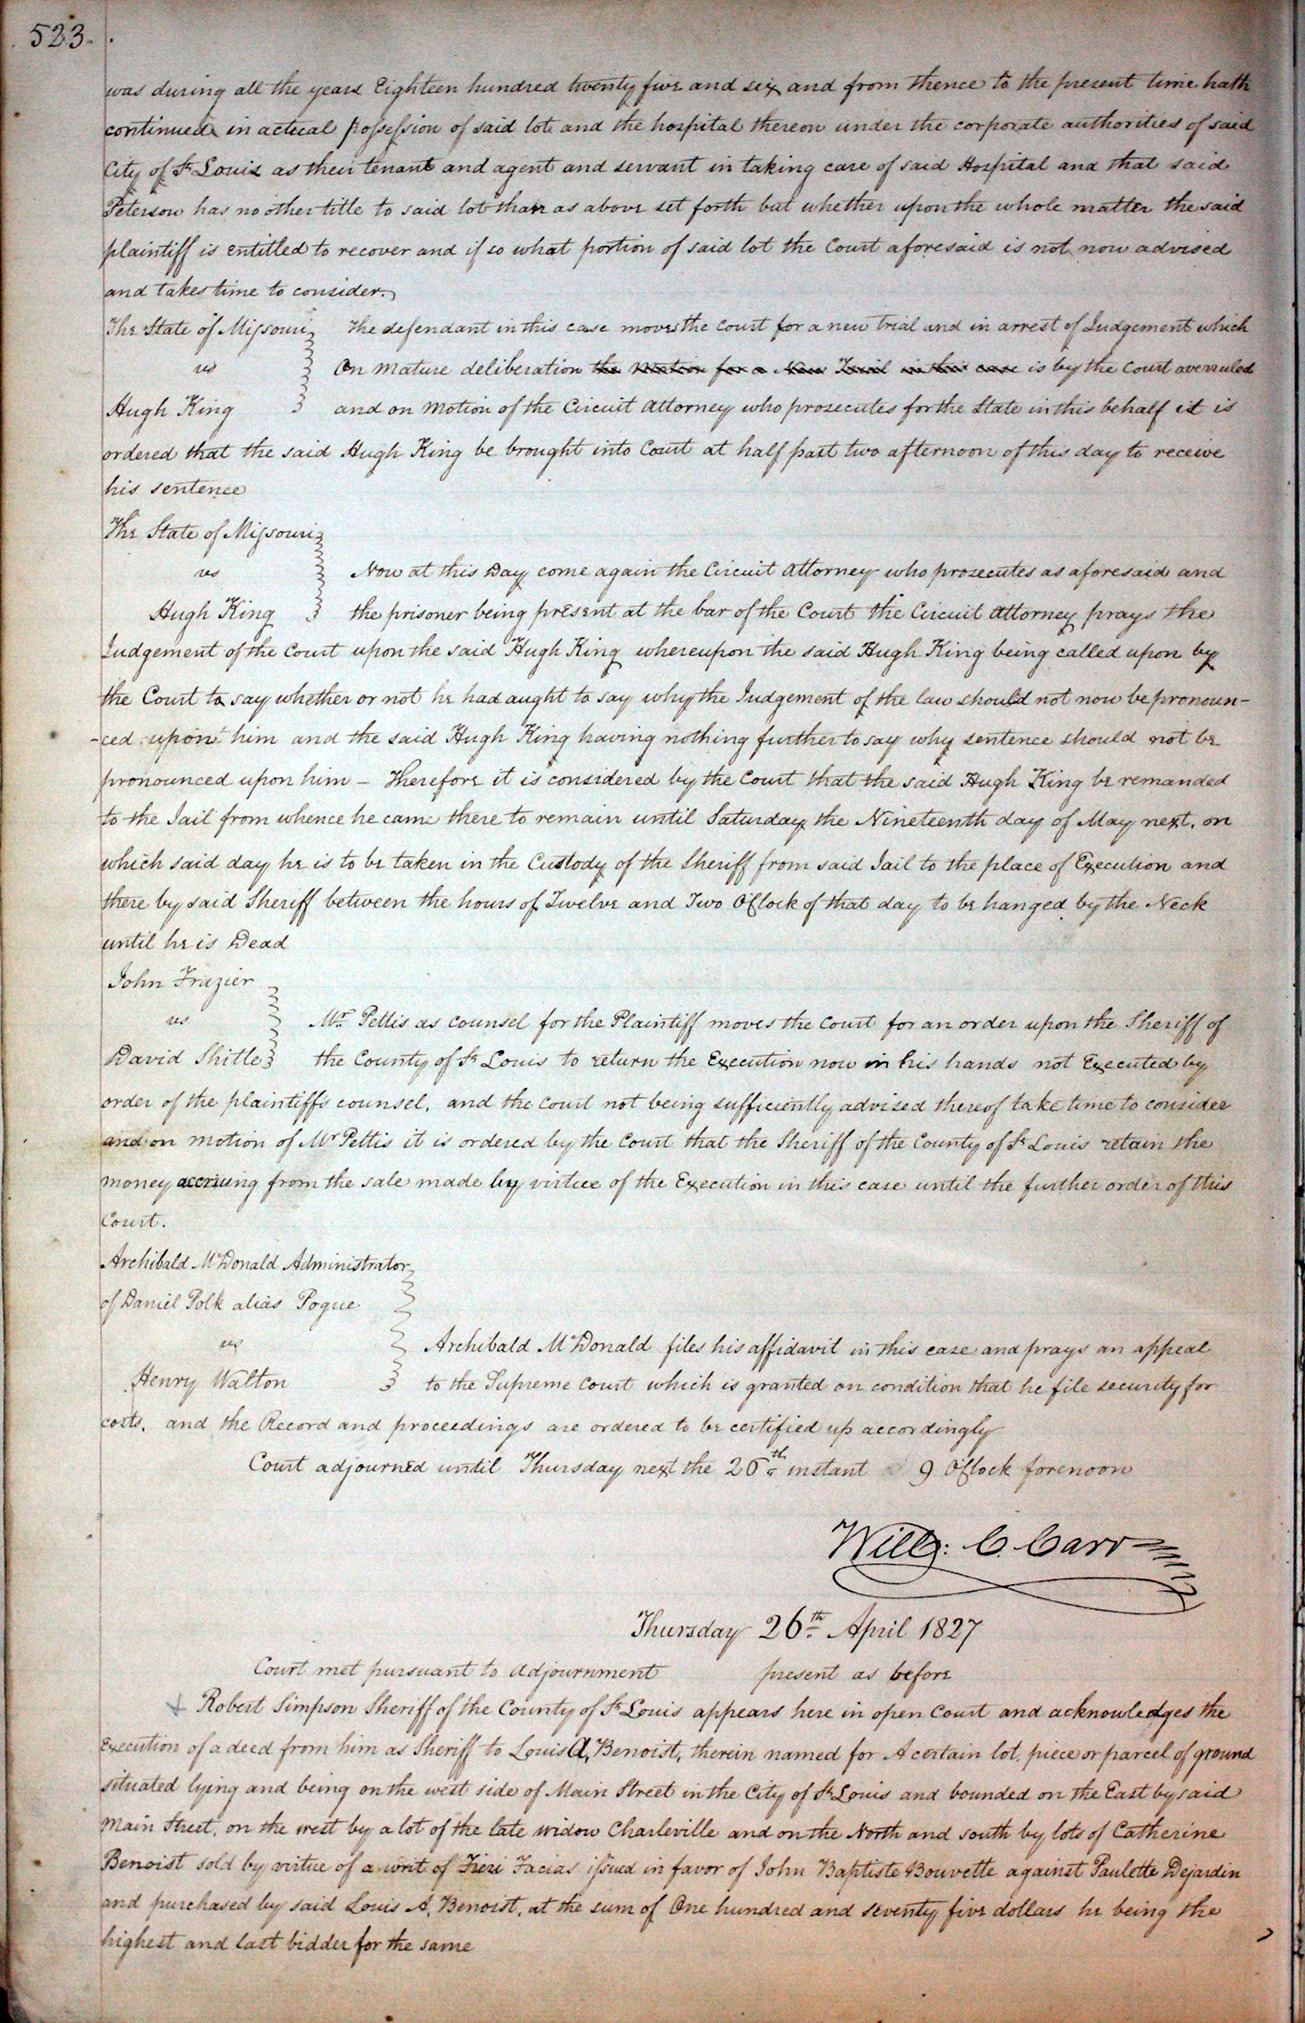 523.
was during all the years Eighteen hundred twenty five and six and from thence to the present time hath
continued in actual possession of said lot and the hospital thereon under the corporate authorities of said
City of St Louis as their tenant and agent and servant in taking care of said Hospital and that said
Peterson has no other title to said lot than as above set forth but whether upon the whole matter the said
plaintiff is entitled to recover and if so what portion of said lot the Court aforesaid is not now advised
and takes time to consider.
The State of Missouri The defendant in this case moves the Court for a new trial and in arrest of Judgement which
vs On mature deliberation the motion for a New Trail in this case is by the Court overruled
Hugh King and on motion of the Circuit Attorney who prosecutes for the State in this behalf it is
ordered that the said Hugh King be brought into Court at half past two afternoon of this day to receive
his sentence
The State of Missouri
vs Now at this Day come again the Circuit Attorney who prosecutes as aforesaid and
Hugh King the prisoner being present at the bar of the Court the Circuit Attorney prays the
Judgement of the Court upon the said Hugh King whereupon the said Hugh King being called upon by
the Court to say whether or not he had aught to say why the Judgement of the law should not now be pronoun-
-ced upon him and the said Hugh King having nothing further to say why sentence should not be
pronounced upon him – Therefore it is considered by the Court that the said Hugh King be remanded
to the Jail from whence he came there to remain until Saturday the Nineteenth day of May next, on
which said day he is to be taken in the Custody of the Sheriff from said Jail to the place of Execution and
there by said Sheriff between the hours of Twelve and Two OClock of that day to be hanged by the Neck
until he is Dead
John Frazier
vs Mr Pettis as counsel for the Plaintiff moves the Court for an order upon the Sheriff of
David Shitle the County of St Louis to return the Execution now in his hands not Executed by
order of the plaintiffs counsel, and the Court not being sufficiently advised thereof take time to consider
and on motion of Mr Pettis it is ordered by the Court that the Sheriff of the County of St Louis retain the
money accruing from the sale made by virtue of the Execution in this case until the further order of this
Court.
Archibald McDonald Administrator
of Daniel Polk alias Pogue
vs Archibald McDonald files his affidavit in this case and prays an appeal
Henry Walton to the Supreme Court which is granted on condition that he file security for
costs, and the Record and proceedings are ordered to be certified up accordingly
Court adjourned until Thursday next the 26th instant 9 OClock forenoon
Will: C. Carr
Thursday 26th April 1827
Court met pursuant to adjournment present as before
Robert Simpson Sheriff of the County of St Louis appears here in open Court and acknowledges the
Execution of a deed from him as Sheriff to Louis A, Benoist, therein named for A certain lot, piece or parcel of ground
situated lying and being on the west side of Main Street in the City of St Louis and bounded on the East by said
Main Street, on the west by a lot of the late widow Charleville and on the North and south by lots of Catherine
Benoist sold by virtue of a writ of Fieri Facias issued in favor of John Baptiste Bouvette against Paulette Dejardin
and purchased by said Louis A, Benoist, at the sum of One hundred and seventy five dollars he being the
highest and last bidder for the same